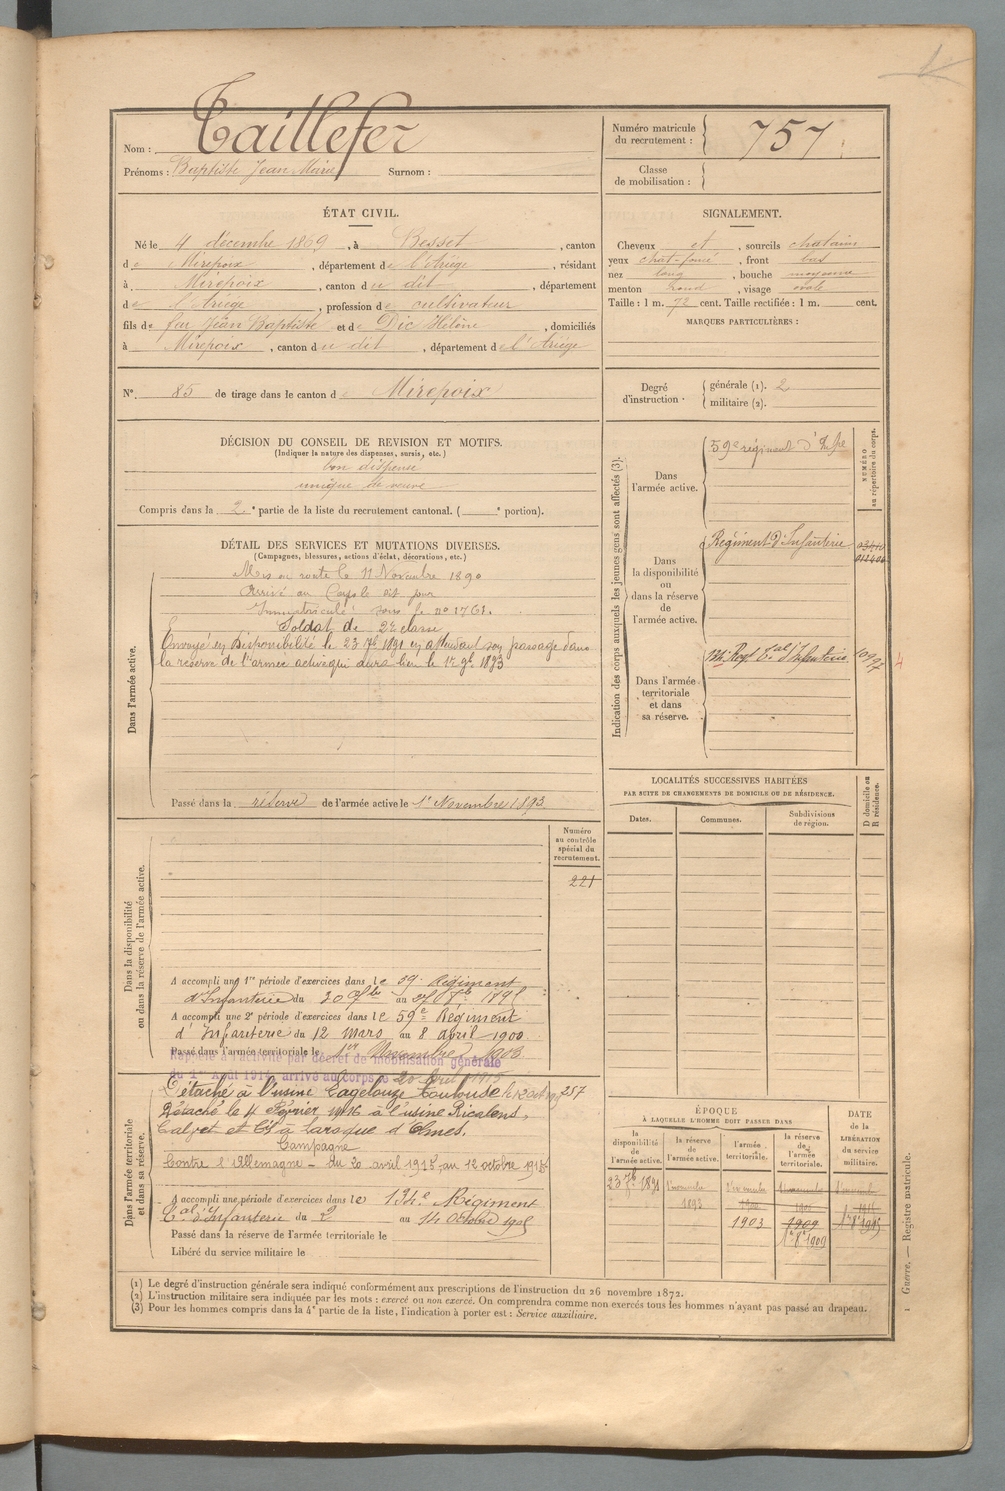 Nom : Taillefer
Prénoms : Baptiste Jean Marie Surnom :
Numéro matricule du recrutement : 757
Classe de mobilisation :
ÉTAT CIVIL.
Né le 4 décembre 1869, à Besset, canton
de Mirepoix, département de l'Ariège, résidant
à Mirepoix, canton du dit, département
de l'Ariège, profession de cultivateur
fils de feu Jean Baptiste et de Dic Hélène, domiciliés
à Mirepoix, canton du dit, département de l'Ariège
SIGNALEMENT.
Cheveux et, sourcils chatains
yeux chat-foncé, front bas
nez long, bouche moyenne
menton rond, visage ovale
Taille : 1 m. 72 cent. Taille rectifiée : 1 m. cent.
MARQUES PARTICULIÈRES :
N° 85 de tirage dans le canton de Mirepoix
Degré d'instruction : générale (1). 2
militaire (2).
DÉCISION DU CONSEIL DE REVISION ET MOTIFS.
(Indiquer la nature des dispenses, sursis, etc.)
bon dispensé
unique de veuve
Compris dans la 2e partie de la liste du recrutement cantonal. ( e portion).
DÉTAIL DES SERVICES ET MUTATIONS DIVERSES.
(Campagnes, blessures, actions d'éclat, décorations, etc.)
Dans l'armée active.
Mis en route le 11 Novembre 1890
Arrivé au Corps le dit jour
Immatriculé sous le no 1761.
Soldat de 2e classe
Envoyé en disponibilité le 23 7bre 1891 en attendant son passage dans
la réserve de l'armée active qui aura lieu le 1er 9bre 1893
Passé dans la réserve de l'armée active le 1er Novembre 1893
Indication des corps auxquels les jeunes gens sont affectés (3).
NUMÉRO au répertoire du corps.
Dans l'armée active.
59e régiment d'Infie
Dans la disponibilité ou dans la réserve de l'armée active.
Régiment d'Infanterie
Dans l'armée territoriale et dans sa réserve.
134e Regt Tal d'Infanterie
LOCALITÉS SUCCESSIVES HABITÉES
PAR SUITE DE CHANGEMENTS DE DOMICILE OU DE RÉSIDENCE.
D domicile ou R résidence.
Dates. Communes. Subdivisions de région.
Dans la disponibilité ou dans la réserve de l'armée active.
Numéro au contrôle spécial du recrutement.
221
A accompli une 1re période d'exercices dans le 59e Régiment
d'Infanterie du
A accompli une 2e période d'exercices dans le 59e Régiment
d'Infanterie du 12 mars au 8 avril 1900
Passé dans l'armée territoriale le 1er Novembre 1903
Rappelé à l'activité par décret de mobilisation générale
du 1er Août 1914, arrivé au corps le 20 avril 1915
Dans l'armée territoriale et dans sa réserve.
Détaché à l'usine Lagelouze Toulouse le 12 octobre
257
Détaché le 4 Février 1916 à l'usine Ricalens,
Calvet et Cie à Laroque d'Olmes.
Campagne
Contre l'Allemagne - du 20 avril 1915 au 12 octobre 1915
A accompli une période d'exercices dans le 134e Régiment
Tal d'Infanterie du 2 au 14 Octobre 1905
Passé dans la réserve de l'armée territoriale le
Libéré du service militaire le
ÉPOQUE
À LAQUELLE L'HOMME DOIT PASSER DANS
la disponibilité de l'armée active.
la réserve de l'armée active.
l'armée territoriale.
la réserve de l'armée territoriale.
DATE de la LIBÉRATION du service militaire.
23 7bre 1891
1er novembre 1893
1er novembre
1903
1909
1909
(1) Le degré d'instruction générale sera indiqué conformément aux prescriptions de l'instruction du 26 novembre 1872.
(2) L'instruction militaire sera indiquée par les mots : exercé ou non exercé. On comprendra comme non exercés tous les hommes n'ayant pas passé au drapeau.
(3) Pour les hommes compris dans la 4e partie de la liste, l'indication à porter est : Service auxiliaire.
1 Guerre. — Registre matricule.